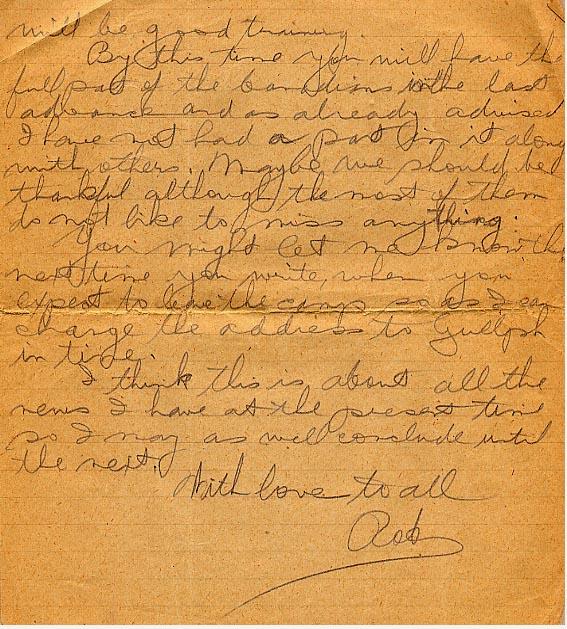 will be good training.
By this time you will have the
full part of the Canadians in the last
advance and as already advised
I have not had a part in it along
with others. Maybe we should be
thankful although the most of them
do not like to miss anything.
You might let me know the
next time you write, when you
expect to leave the camp so as I can
change the address to Guelph
in time.
I think this is about all the
news I have at the present time
so I may as well conclude until
the next.
With love to all
Rob